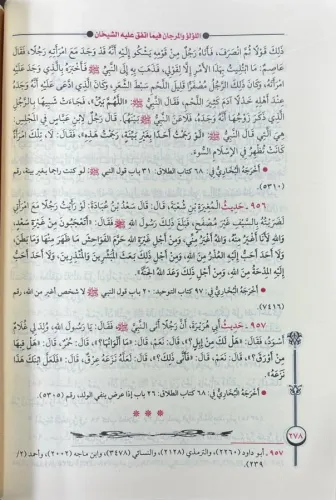 اللؤلؤ والمرجان فيما اتفق عليه الشيخان
ذَلِكَ قَوْلًا ثُمَّ انْصَرَفَ، فَأَتَاهُ رَجُلٌ مِنْ قَوْمِهِ يَشْكُو إِلَيْهِ أَنَّهُ قَدْ وَجَدَ مَعَ امْرَأَتِهِ رَجُلًا، فَقَالَ
عَاصِمٌ: مَا ابْتُلِيتُ بِهَذَا الْأَمْرِ إِلَّا لِقَوْلِي، فَذَهَبَ بِهِ إِلَى النَّبِيِّ ﷺ فَأَخْبَرَهُ بِالَّذِي وَجَدَ عَلَيْهِ
امْرَأَتَهُ، وَكَانَ ذَلِكَ الرَّجُلُ مُصْفَرًّا قَلِيلَ اللَّحْمِ سَبْطَ الشَّعَرِ، وَكَانَ الَّذِي ادَّعَى عَلَيْهِ أَنَّهُ وَجَدَهُ
عِنْدَ أَهْلِهِ خَدْلًا آدَمَ كَثِيرَ اللَّحْمِ، فَقَالَ النَّبِيُّ ﷺ: «اللَّهُمَّ بَيِّنْ»، فَجَاءَتْ شَبِيهًا بِالرَّجُلِ
الَّذِي ذَكَرَ زَوْجُهَا أَنَّهُ وَجَدَهُ، فَلَاعَنَ النَّبِيُّ ﷺ بَيْنَهُمَا. قَالَ رَجُلٌ لِابْنِ عَبَّاسٍ فِي الْمَجْلِسِ:
هِيَ الَّتِي قَالَ النَّبِيُّ ﷺ: «لَوْ رَجَمْتُ أَحَدًا بِغَيْرِ بَيِّنَةٍ، رَجَمْتُ هَذِهِ»، فَقَالَ: لَا، تِلْكَ امْرَأَةٌ
كَانَتْ تُظْهِرُ فِي الْإِسْلَامِ السُّوءَ.
• أخرجه البخاري في: ٦٨ كتاب الطلاق: ٣١ باب قول النبي ﷺ: لو كنت راجما بغير بينة، رقم
(٥٣١٠).
٩٥٦ - حديث الْمُغِيرَةِ بْنِ شُعْبَةَ، قَالَ: قَالَ سَعْدُ بْنُ عُبَادَةَ: لَوْ رَأَيْتُ رَجُلًا مَعَ امْرَأَتِي
لَضَرَبْتُهُ بِالسَّيْفِ غَيْرَ مُصْفَحٍ، فَبَلَغَ ذَلِكَ رَسُولَ اللَّهِ ﷺ فَقَالَ: «أَتَعْجَبُونَ مِنْ غَيْرَةِ سَعْدٍ،
وَاللَّهِ لَأَنَا أَغْيَرُ مِنْهُ، وَاللَّهُ أَغْيَرُ مِنِّي، وَمِنْ أَجْلِ غَيْرَةِ اللَّهِ حَرَّمَ الْفَوَاحِشَ مَا ظَهَرَ مِنْهَا وَمَا بَطَنَ،
وَلَا أَحَدَ أَحَبُّ إِلَيْهِ الْعُذْرُ مِنَ اللَّهِ، وَمِنْ أَجْلِ ذَلِكَ بَعَثَ الْمُبَشِّرِينَ وَالْمُنْذِرِينَ، وَلَا أَحَدَ أَحَبُّ
إِلَيْهِ الْمِدْحَةُ مِنَ اللَّهِ، وَمِنْ أَجْلِ ذَلِكَ وَعَدَ اللَّهُ الْجَنَّةَ».
• أخرجه البخاري في: ٩٧ كتاب التوحيد: ٢٠ باب قول النبي ﷺ لا شخص أغير من الله، رقم
(٧٤١٦).
٩٥٧ - حديث أَبِي هُرَيْرَةَ، أَنَّ رَجُلًا أَتَى النَّبِيَّ ﷺ، فَقَالَ: يَا رَسُولَ اللَّهِ، وُلِدَ لِي غُلَامٌ
أَسْوَدُ، فَقَالَ: «هَلْ لَكَ مِنْ إِبِلٍ؟»، قَالَ: نَعَمْ، قَالَ: «مَا أَلْوَانُهَا؟»، قَالَ: حُمْرٌ، قَالَ: «هَلْ فِيهَا
مِنْ أَوْرَقَ؟»، قَالَ: نَعَمْ، قَالَ: «فَأَنَّى ذَلِكَ؟»، قَالَ: لَعَلَّهُ نَزَعَهُ عِرْقٌ، قَالَ: «فَلَعَلَّ ابْنَكَ هَذَا
نَزَعَهُ».
• أخرجه البخاري في: ٦٨ كتاب الطلاق: ٢٦ باب إذا عرض بنفي الولد، رقم (٥٣٠٥).
* * *
٢٧٨
٩٥٧ - أبو داود (٢٢٦٠)، والترمذي (٢١٢٨)، والنسائي (٣٤٧٨)، وابن ماجه (٢٠٠٢)، وأحمد (٢/
٢٣٩).